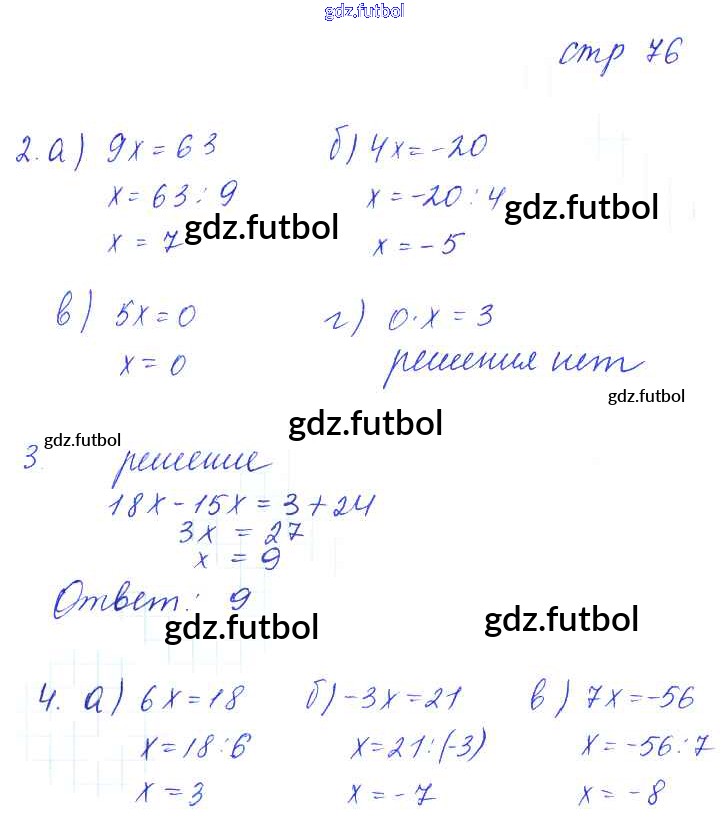 gdz.futbol
стр 76
2. а) 9x = 63 б) 4x = -20
x = 63 : 9 x = -20 : 4 gdz.futbol
x = 7 gdz.futbol x = -5
в) 5x = 0 г) 0·x = 3
x = 0 решения нет
gdz.futbol
gdz.futbol
gdz.futbol
3. решение
18x - 15x = 3 + 24
3x = 27
x = 9
Ответ: 9
gdz.futbol gdz.futbol
4. а) 6x = 18 б) -3x = 21 в) 7x = -56
x = 18 : 6 x = 21 : (-3) x = -56 : 7
x = 3 x = -7 x = -8